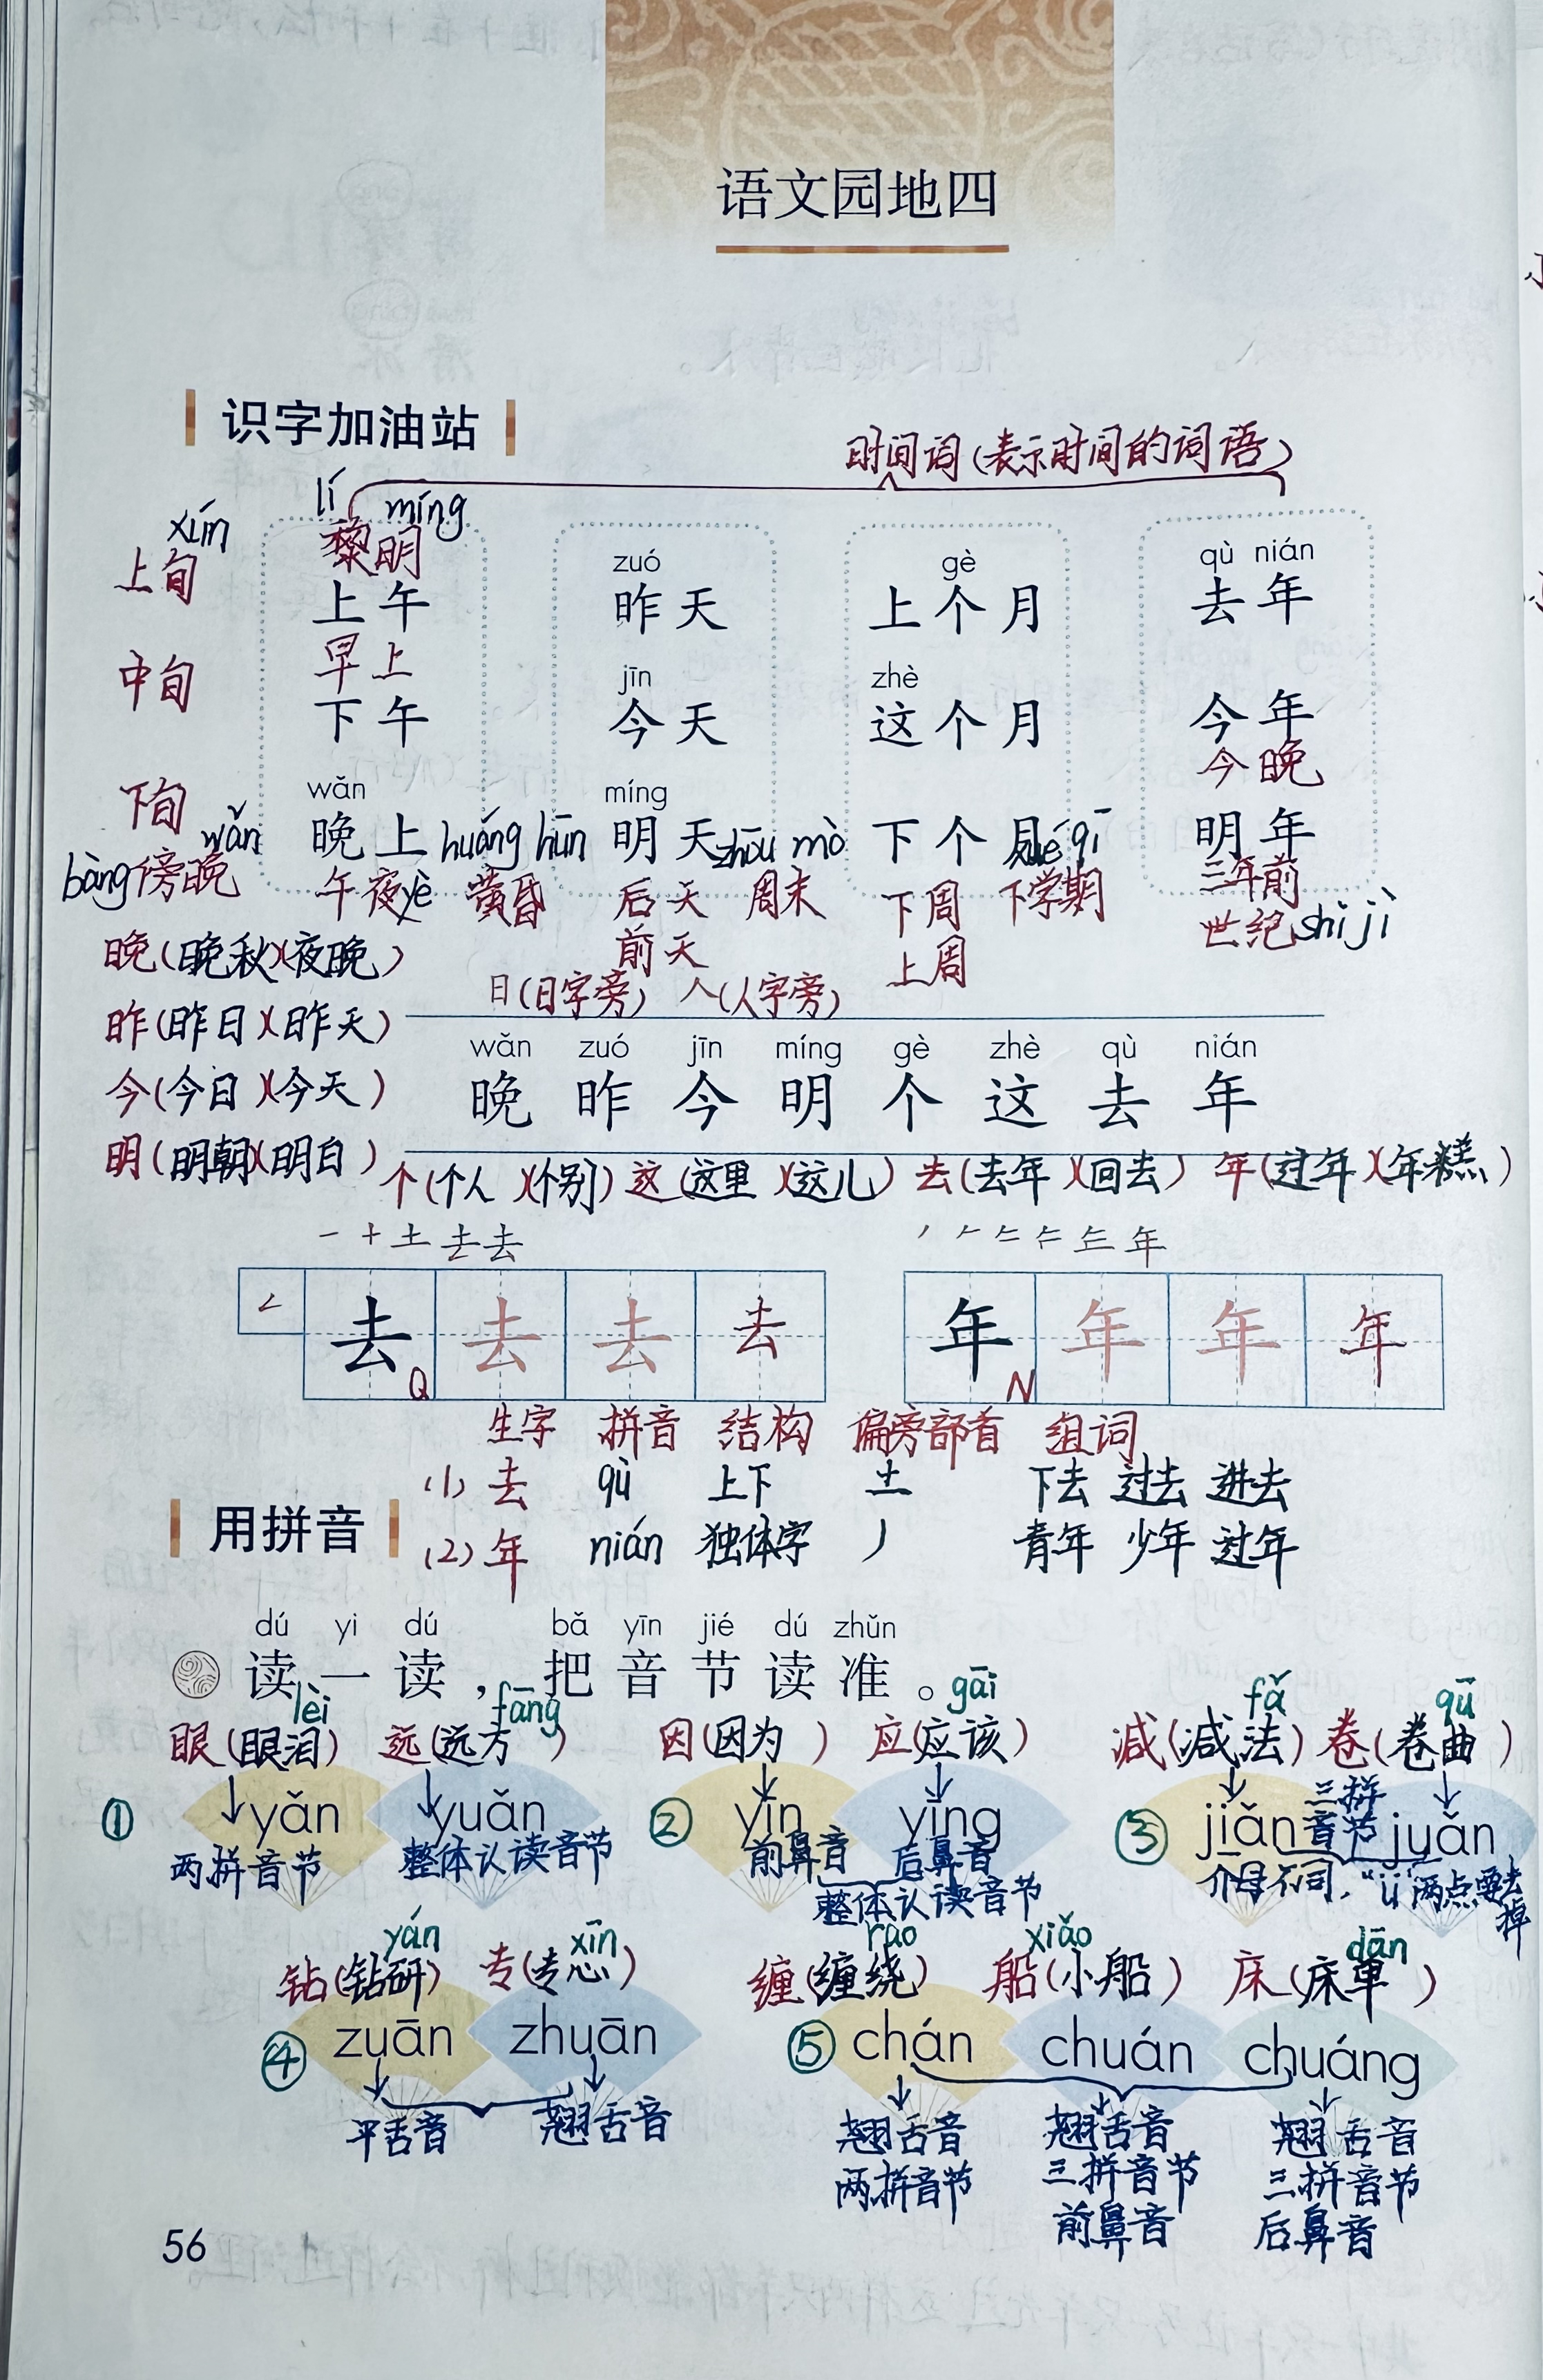 语文园地四
识字加油站
时间词(表示时间的词语)
lí míng
xún
黎明
上旬
zuó gè qù nián
上午 昨天 上个月 去年
早上
jīn zhè
中旬 下午 今天 这个月 今年
今晚
wǎn míng
下旬
wǎn 晚上 huáng hūn 明天 zhōu mò 下个月 xué qī 明年
bàng 傍晚 午夜 yè 黄昏 后天 周末 下周 下学期 三年前
前天 上周 世纪 shì jì
晚(晚秋)(夜晚)
日(日字旁) 人(人字旁)
昨(昨日)(昨天)
wǎn zuó jīn míng gè zhè qù nián
今(今日)(今天) 晚 昨 今 明 个 这 去 年
明(明朝)(明白)
个(个人)(个别) 这(这里)(这儿) 去(去年)(回去) 年(过年)(年糕)
去 去 去 去 年 年 年 年
Q N
生字 拼音 结构 偏旁部首 组词
(1) 去 qù 上下 土 下去 过去 进去
用拼音
(2) 年 nián 独体字 丿 青年 少年 过年
dú yi dú bǎ yīn jié dú zhǔn
读一读,把音节读准。
lèi fāng gāi fǎ qū
眼(眼泪) 远(远方) 因(因为) 应(应该) 减(减法) 卷(卷曲)
① yǎn yuǎn ② yīn yīng ③ jiǎn 三拼音节 juǎn
两拼音节 整体认读音节 前鼻音 后鼻音 介母不同,“ü”两点要去掉
整体认读音节
yán xīn rào xiǎo dān
钻(钻研) 专(专心) 缠(缠绕) 船(小船) 床(床单)
④ zuān zhuān ⑤ chán chuán chuáng
平舌音 翘舌音 翘舌音 翘舌音 翘舌音
两拼音节 三拼音节 三拼音节
前鼻音 后鼻音
56